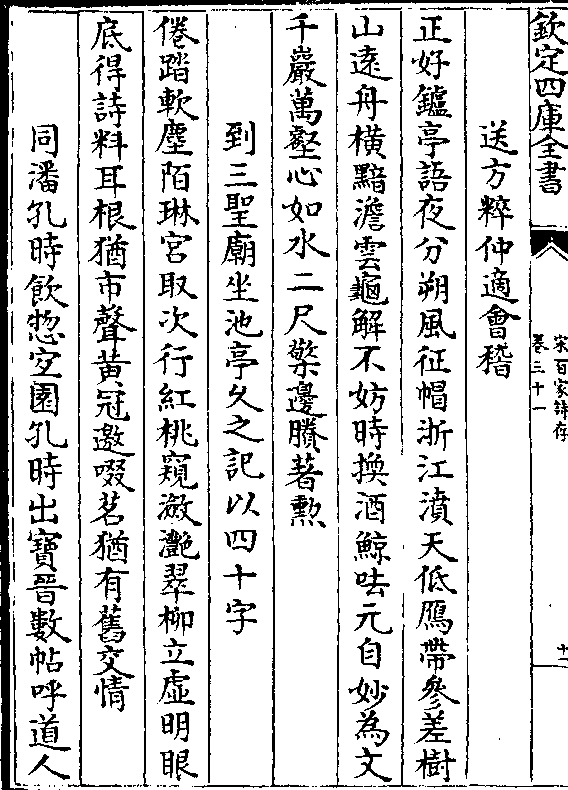 欽定四庫全書
宋百家詩存
卷三十一
十二
送方粹仲適會稽
正好鑪亭語夜分朔風征帽浙江濆天低鴈帶參差樹
山遠舟橫黯澹雲龜解不妨時換酒鯨呿元自妙為文
千巖萬壑心如水二尺檠邊賸著勲
到三聖廟坐池亭久之記以四十字
倦踏軟塵陌琳宮取次行紅桃窺瀲灔翠柳立虛明眼
底得詩料耳根猶市聲黃冠邀啜茗猶有舊交情
同潘孔時飲惣定園孔時出寶晉數帖呼道人